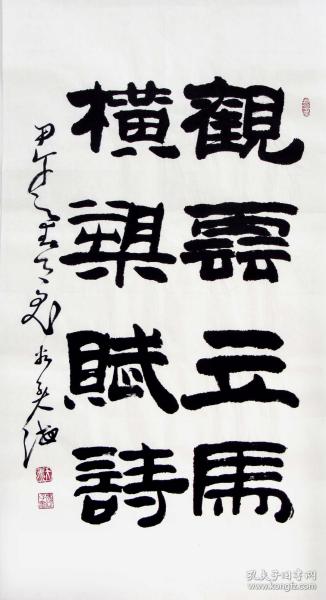 觀雲立馬
橫槊賦詩
甲午之
孔夫子旧书网